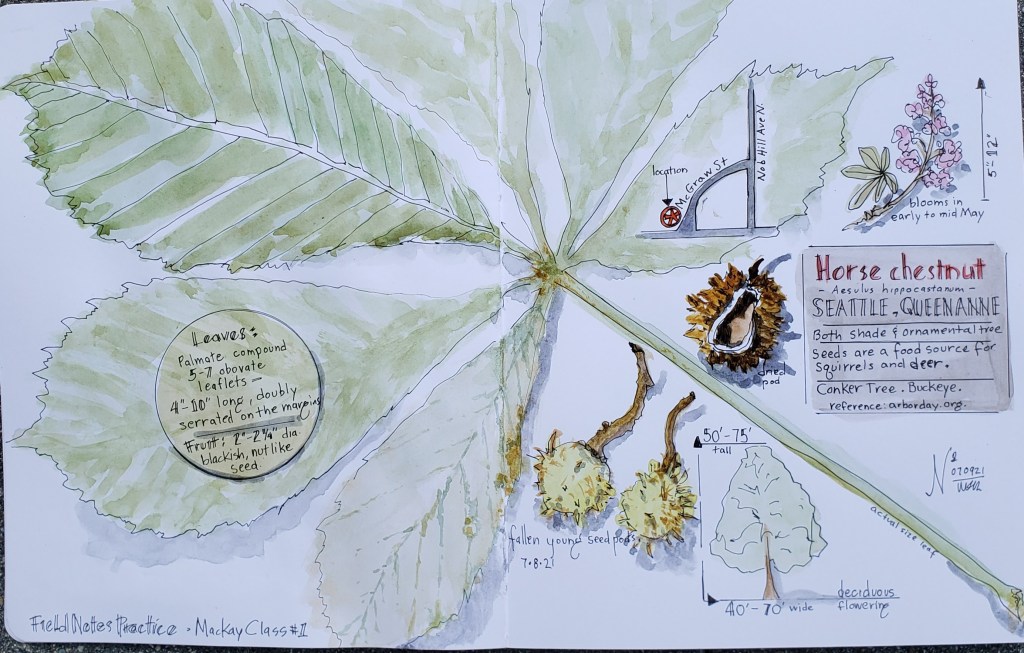 location
McGraw St
Nob Hill Ave N.
5"-12"
blooms in
early to mid May
Horse chestnut
- Aesulus hippocastanum -
SEATTLE, QUEEN ANNE
Both shade & ornamental tree
Seeds are a food source for
squirrels and deer.
Conker Tree. Buckeye.
reference: arborday.org.
dried
pod
Leaves:
Palmate compound
5-7 obovate
leaflets -
4"-10" long, doubly
serrated on the margins
Fruit: 2"-2¼" dia.
blackish, nut like
seed.
50'-75'
tall
fallen young seed pods
7.8.21
40'-70' wide
deciduous
flowering
actual size leaf
070921
Field Notes Practice - Mackay Class #1